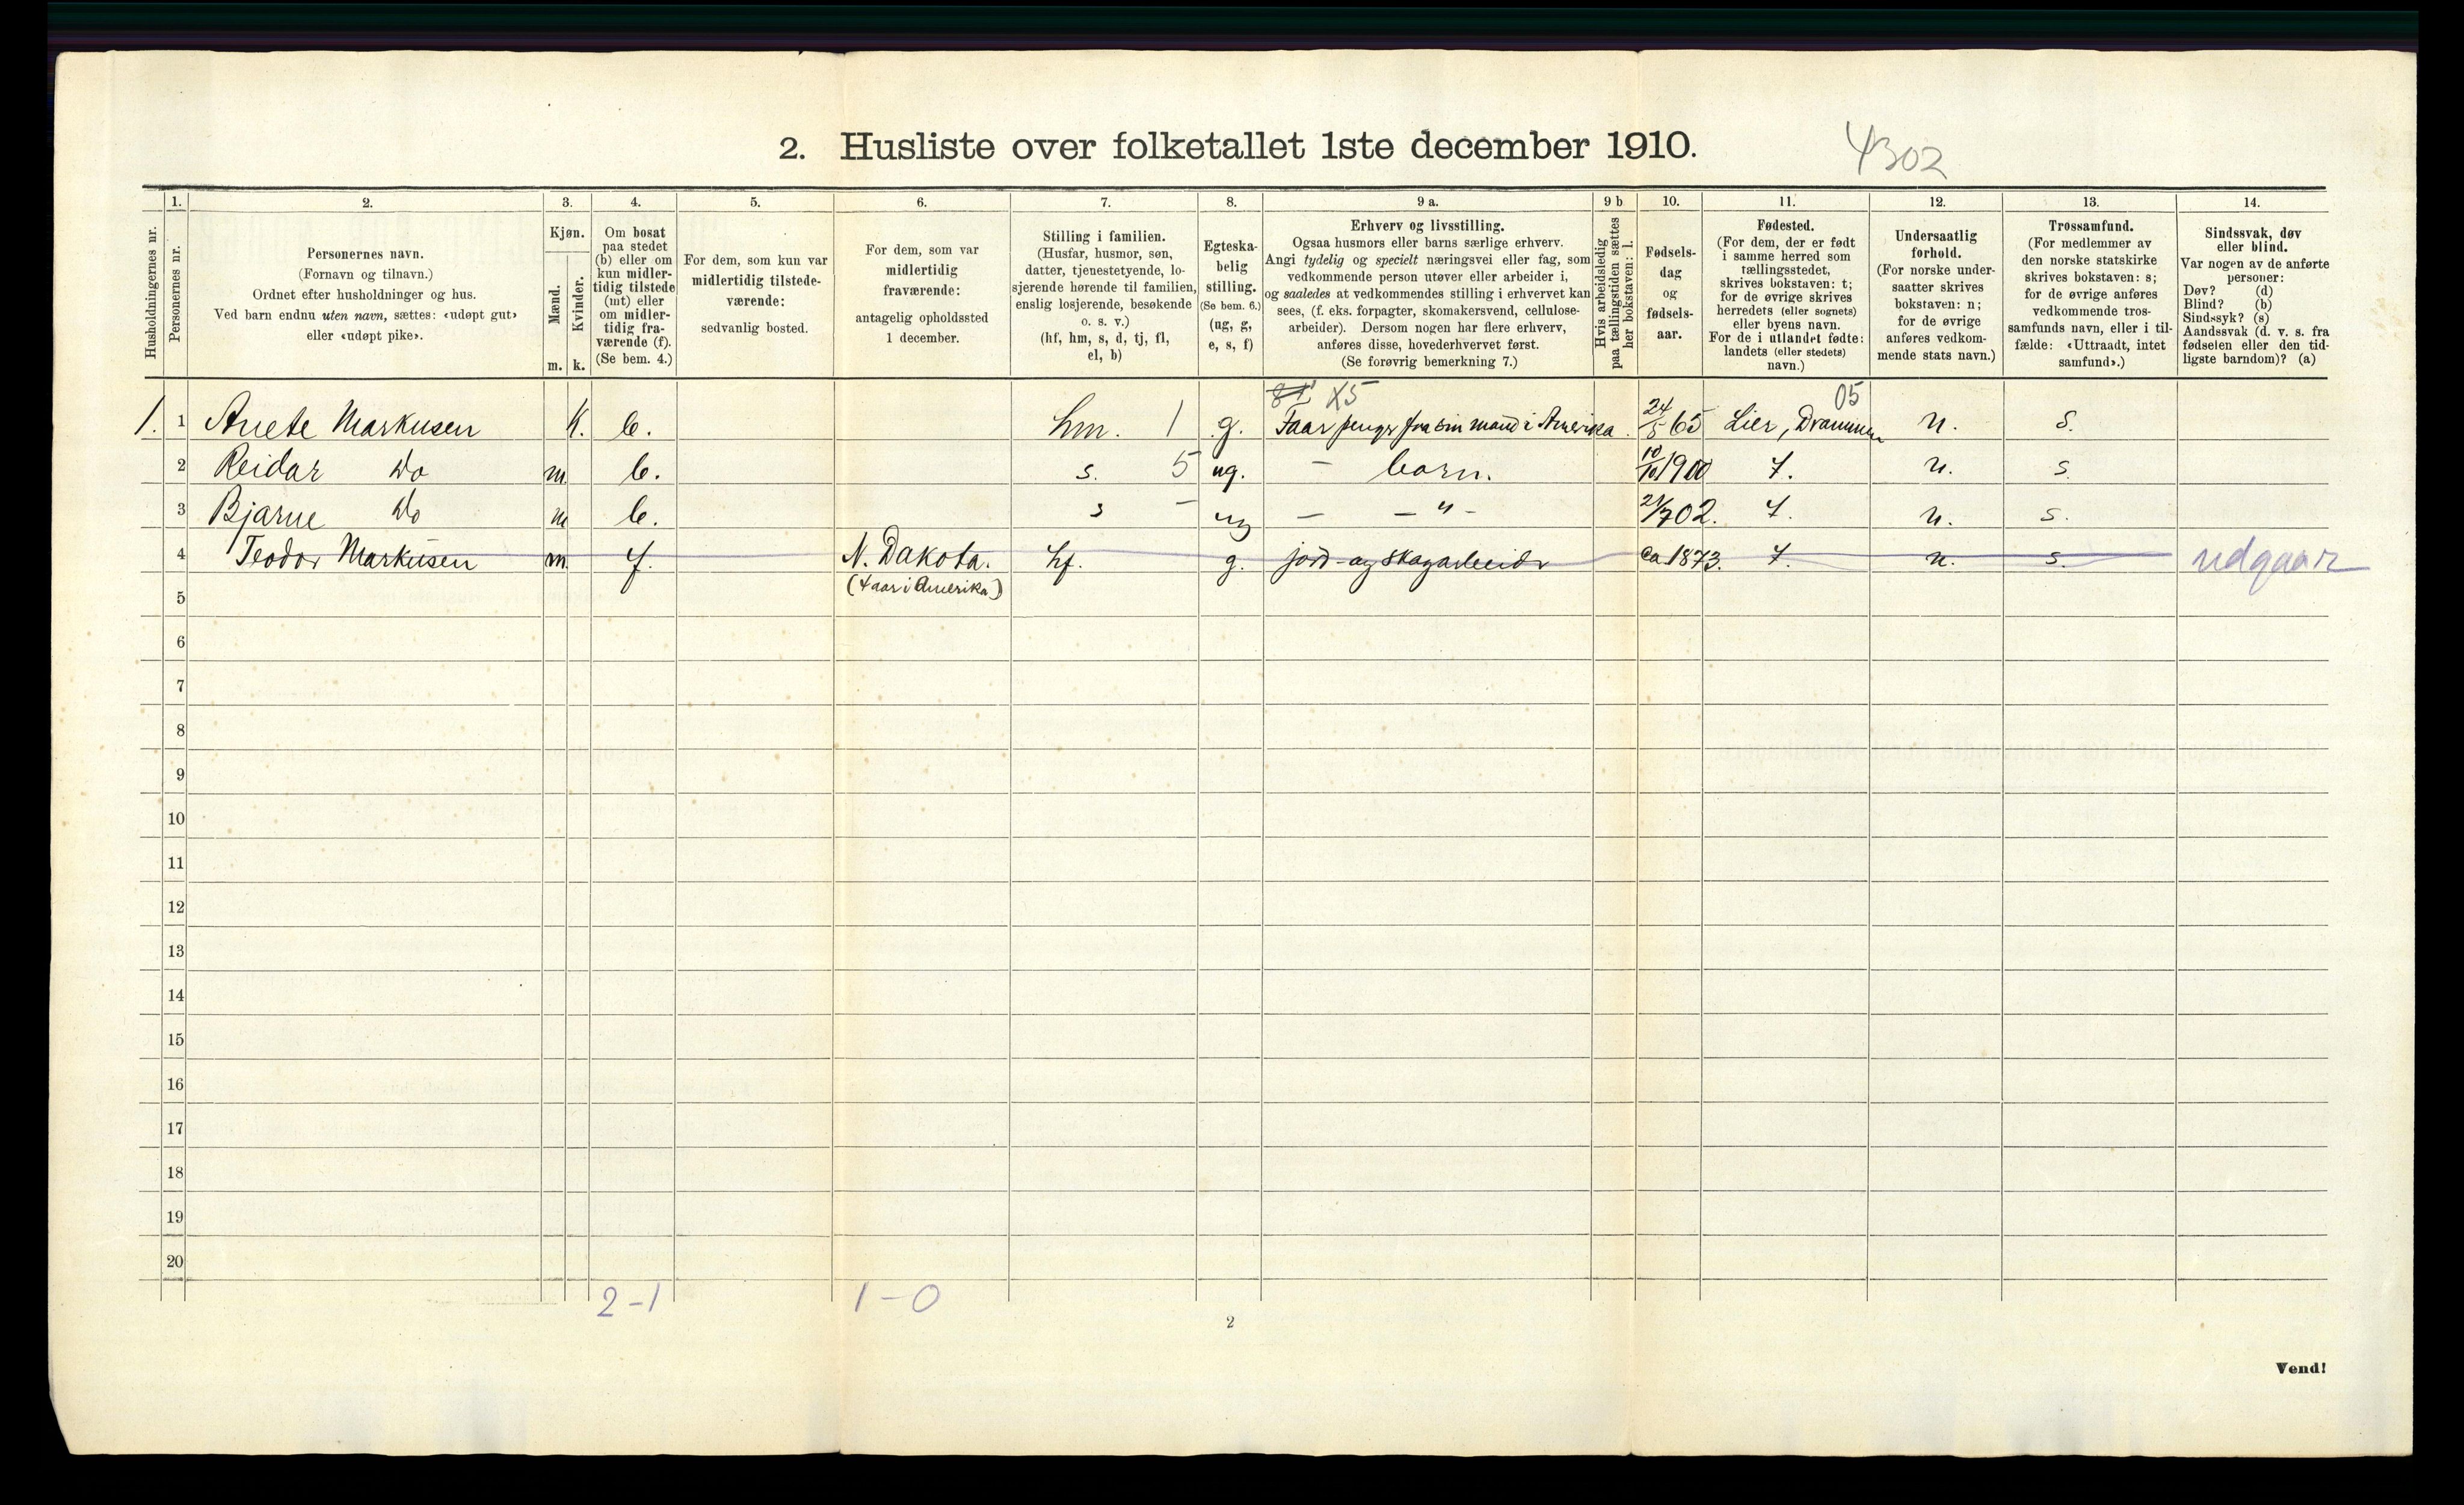 2. Husliste over folketallet 1ste december 1910.
4302
1. 2. 3. 4. 5. 6. 7. 8. 9 a. 9 b 10. 11. 12. 13. 14.
Husholdningernes nr.
Personernes nr.
Personernes navn.
(Fornavn og tilnavn.)
Ordnet efter husholdninger og hus.
Ved barn endnu uten navn, sættes: «udøpt gut»
eller «udøpt pike».
Kjøn.
Mænd.
Kvinder.
m. k.
Om bosat
paa stedet
(b) eller om
kun midler-
tidig tilstede
(mt) eller
om midler-
tidig fra-
værende (f).
(Se bem. 4.)
For dem, som kun var
midlertidig tilstede-
værende:
sedvanlig bosted.
For dem, som var
midlertidig
fraværende:
antagelig opholdssted
1 december.
Stilling i familien.
(Husfar, husmor, søn,
datter, tjenestetyende, lo-
sjerende hørende til familien,
enslig losjerende, besøkende
o. s. v.)
(hf, hm, s, d, tj, fl,
el, b)
Egteska-
belig
stilling.
(Se bem. 6.)
(ug, g,
e, s, f)
Erhverv og livsstilling.
Ogsaa husmors eller barns særlige erhverv.
Angi tydelig og specielt næringsvei eller fag, som
vedkommende person utøver eller arbeider i,
og saaledes at vedkommendes stilling i erhvervet kan
sees, (f. eks. forpagter, skomakersvend, cellulose-
arbeider). Dersom nogen har flere erhverv,
anføres disse, hovederhvervet først.
(Se forøvrig bemerkning 7.)
Hvis arbeidsledig
paa tællingstiden sættes
her bokstaven: l.
Fødsels-
dag
og
fødsels-
aar.
Fødested.
(For dem, der er født
i samme herred som
tællingsstedet,
skrives bokstaven: t;
for de øvrige skrives
herredets (eller sognets)
eller byens navn.
For de i utlandet fødte:
landets (eller stedets)
navn.)
Undersaatlig
forhold.
(For norske under-
saatter skrives
bokstaven: n;
for de øvrige
anføres vedkom-
mende stats navn.)
Trossamfund.
(For medlemmer av
den norske statskirke
skrives bokstaven: s;
for de øvrige anføres
vedkommende tros-
samfunds navn, eller i til-
fælde: «Uttraadt, intet
samfund».)
Sindssvak, døv
eller blind.
Var nogen av de anførte
personer:
Døv? (d)
Blind? (b)
Sindssyk? (s)
Aandssvak (d. v. s. fra
fødselen eller den tid-
ligste barndom)? (a)
X5 05
1. 1 Anete Markusen K. b. hm. 1 g. Faar penger fra sin mand i Amerika. 24/5 65 Lier, Drammen n. s.
2 Reidar Do m. b. s. 5 ug. - barn. 10/10 1900 t. n. s.
3 Bjarne Do m b. s - ug - - " - 21/7 02. t. n. s.
4 Teodor Markusen m. f. N. Dakota. hf. g. jord- og skogarbeider ca 1873. t. n. s. udgaar
(4 aar i Amerika)
5
6
7
8
9
10
11
12
13
14
15
16
17
18
19
20
2-1 1-0
2
Vend!